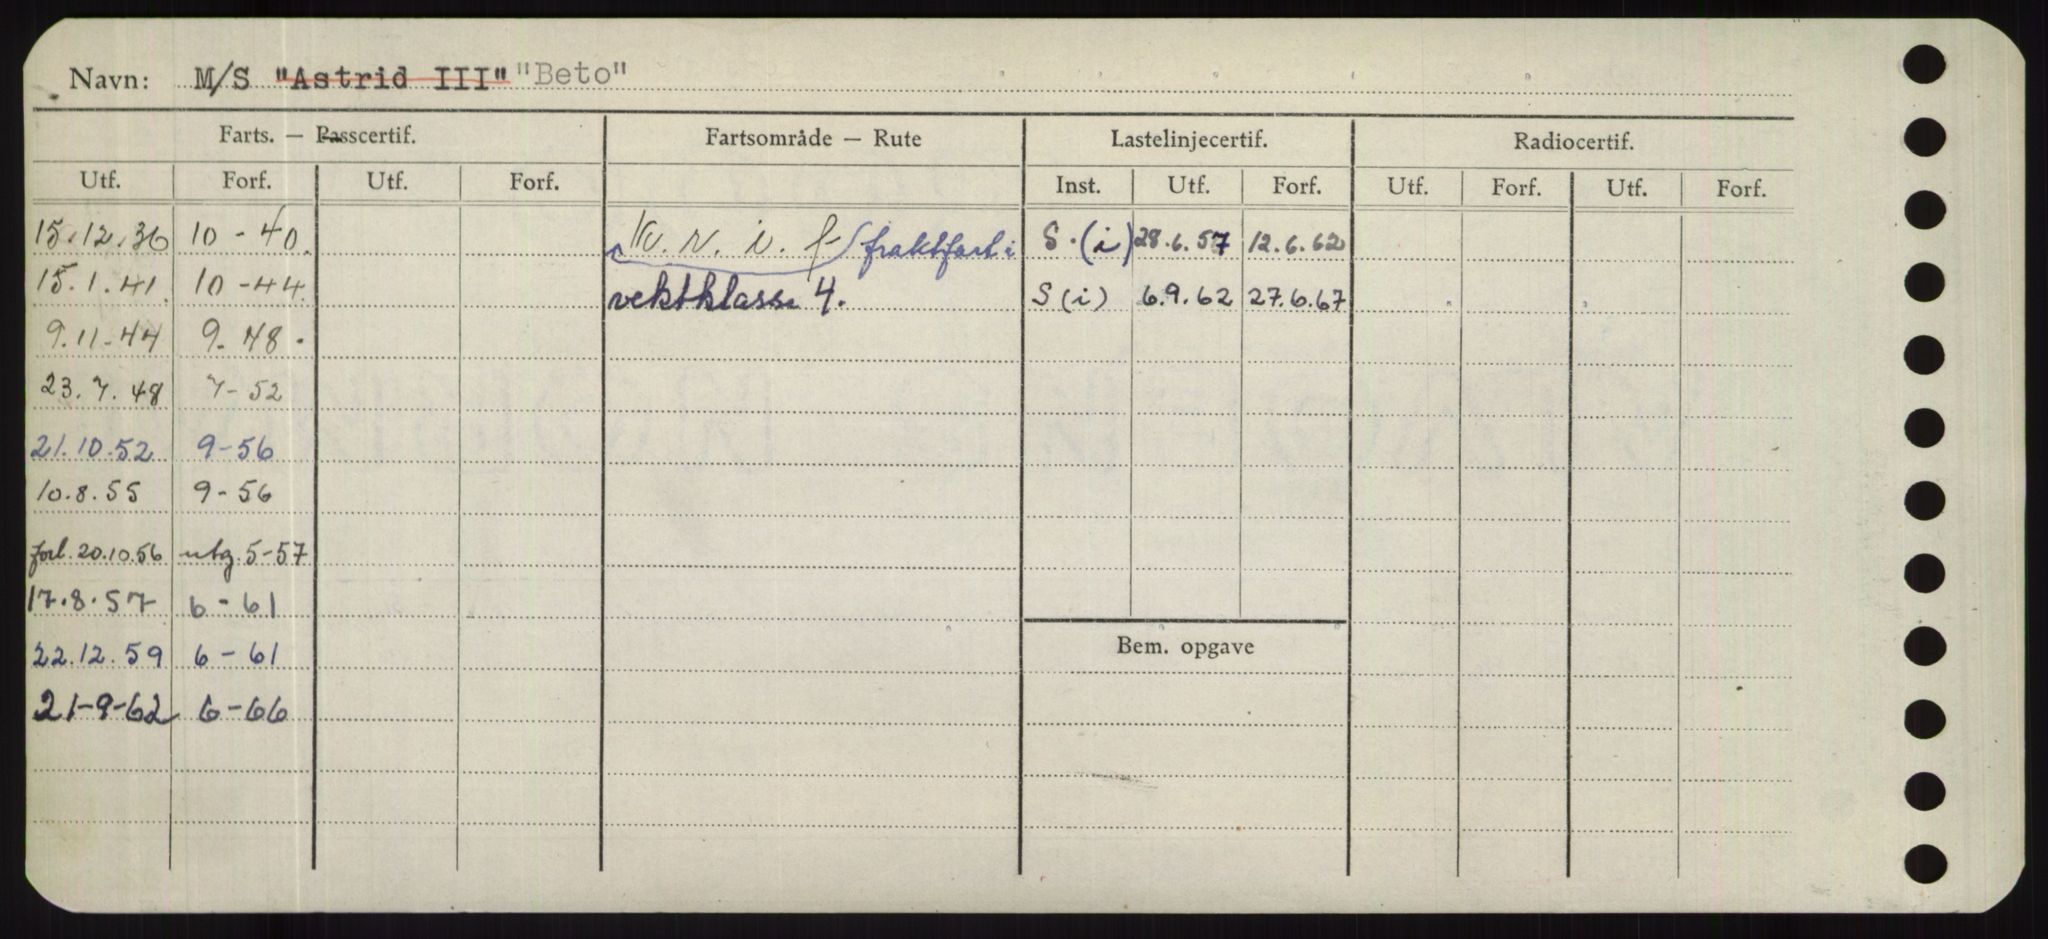 Navn: M/S "Astrid III" "Beto"
Farts. — Passcertif. Fartsområde — Rute Lastelinjecertif. Radiocertif.
Utf. Forf. Utf. Forf. Inst. Utf. Forf. Utf. Forf. Utf. Forf.
15.12.36 10-40. fraktfart i S.(i) 28.6.57 12.6.62
15.1.41. 10-44. vektklasse 4. S(i) 6.9.62 27.6.67
9.11-44 9-48.
23.7.48 7-52
21.10.52 9-56
10.8.55 9-56
forl. 20.10.56 utg. 5-57
17.8.57 6-61
Bem. opgave
22.12.59 6-61
21-9-62 6-66